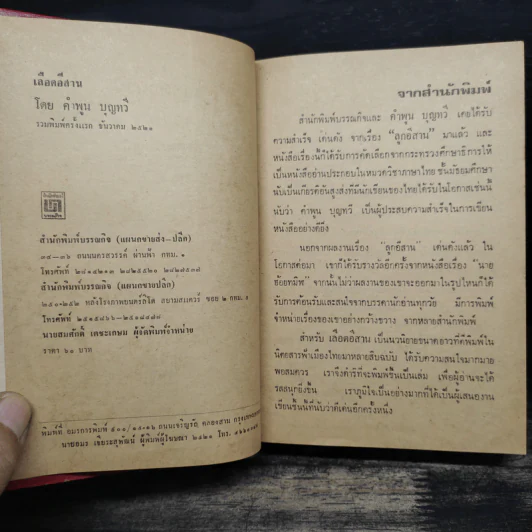 เลือดอีสาน
โดย คำพูน บุญทวี
รวมพิมพ์ครั้งแรก ธันวาคม ๒๕๒๑
สำนักพิมพ์บรรณกิจ (แผนกขายส่ง-ปลีก)
๓๔-๓๖ ถนนนครสวรรค์ ผ่านฟ้า กทม. ๑
โทรศัพท์
สำนักพิมพ์บรรณกิจ (แผนกขายปลีก)
๒๕๑-๒๕๒ หลังโรงภาพยนตร์ลิโด สยามสแควร์ ซอย ๒ กทม.
โทรศัพท์
นายสมศักดิ์ เตชะเกษม ผู้จัดพิมพ์จำหน่าย
ราคา ๖๐ บาท
พิมพ์ที่ อมรการพิมพ์ ถนนเจริญรัถ คลองสาน
ผู้พิมพ์ผู้โฆษณา ๒๕๒๑ โทร.
จากสำนักพิมพ์
สำนักพิมพ์บรรณกิจและ คำพูน บุญทวี เคยได้รับ
ความสำเร็จ เด่นดัง จากเรื่อง "ลูกอีสาน" มาแล้ว และ
หนังสือเรื่องนี้ก็ได้รับการคัดเลือกจากกระทรวงศึกษาธิการให้
เป็นหนังสืออ่านประกอบในหมวดวิชาภาษาไทย ชั้นมัธยมศึกษา
นับเป็นเกียรติอันสูงส่งที่นักเขียนของไทยได้รับในโอกาสเช่นนี้
นับว่า คำพูน บุญทวี เป็นผู้ประสบความสำเร็จในการเขียน
หนังสืออย่างดียิ่ง
นอกจากผลงานเรื่อง "ลูกอีสาน" เด่นดังแล้ว ใน
โอกาสต่อมา เขาก็ได้รับรางวัลอีกครั้งจากหนังสือเรื่อง "นาย
ฮ้อยทมิฬ" จากนั้นไม่ว่าผลงานของเขาจะออกมาในรูปไหนก็ได้
รับการต้อนรับและสนใจจากบรรดานักอ่านทุกวัย มีการพิมพ์
จำหน่ายเรื่องของเขาอย่างกว้างขวาง จากหลายสำนักพิมพ์
สำหรับ เลือดอีสาน เป็นนวนิยายขนาดยาวที่ตีพิมพ์ใน
นิตยสารฟ้าเมืองไทยมาหลายสิบฉบับ ได้รับความสนใจมากมาย
พอสมควร เราจึงดำริที่จะพิมพ์ขึ้นเป็นเล่ม เพื่อผู้อ่านจะได้
รสสนุกยิ่งขึ้น เราภูมิใจเป็นอย่างมากที่ได้เป็นผู้เสนองาน
เขียนชิ้นนี้ที่นับว่าดีเด่นอีกครั้งหนึ่ง